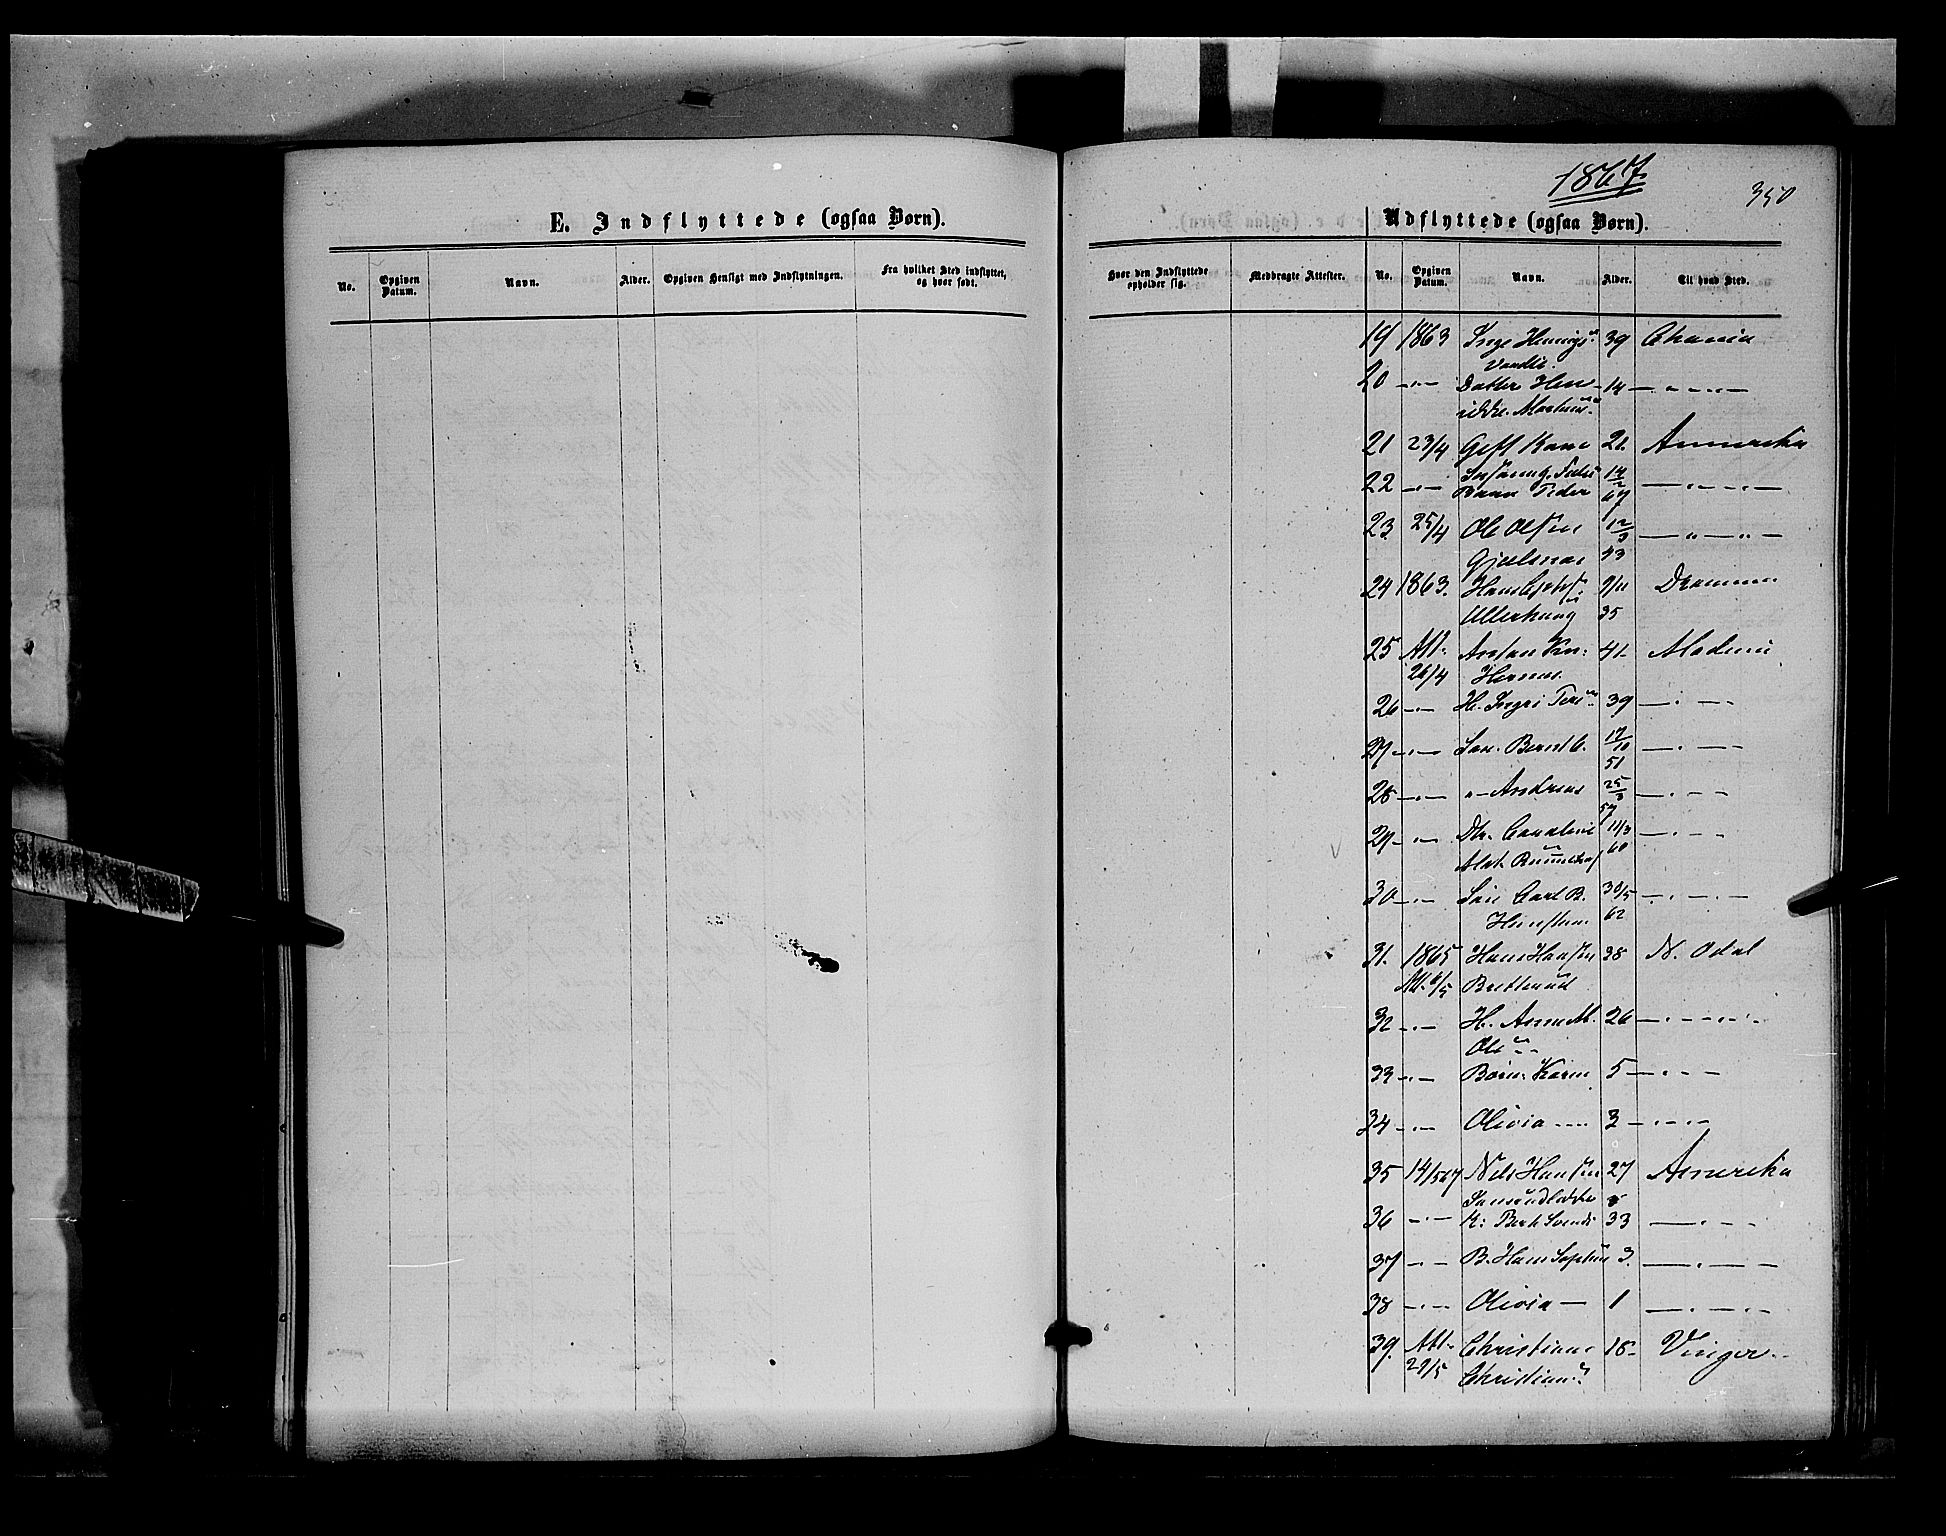 1867
350
E. Indflyttede (ogsaa Børn).
Udflyttede (ogsaa Børn).
No. Opgiven Datum. Navn. Alder. Opgiven Hensigt med Indflytningen. Fra hvilket Sted indflyttet, og hvor født.
Hvor den Indflyttede opholder sig. Medbragte Attester. No. Opgiven Datum. Navn. Alder. Til hvad Sted.
19 1863 Inge 39 Chania
20 -"- Datter Hen- 14 - " - " -
rikke
21 23/4 Gift Kone 21. Amerika
22 -"- 14/2 - " - " -
Barn Peder 67
23. 25/4 Ole Olsen 12/3 - " - " -
43
24 1863. Hans 9/11 Drammen
Ullerhaug 35
25 Att. Anton 41-
26/4 Hernes.
26 -"- H. Ingri 39 - " - -
27 -"- Søn. Bernt C. 17/10 - " - -
51
28 -"- "- Andreas 25/3 - " - -
57
29 -"- Dtr. 11/3 - " - -
60
30 -"- Søn Carl B. 30/5 - " - " -
62
31. 1865 Hans Hansen 28 N. Odal
Att. 6/5
32 -"- H. Anne M. 26 - " - " -
Ols
33 -"- Børn. Karen 5 - " - -
34 -"- Olivia 3 - " - -
35 14/5 67 Nils Hansen 27 Amerika
36 -"- K: Svends 33 - " - -
37 -"- B. Hans 3. - " - -
38 -"- Olivia - 1 - " - -
39. Att. Christiane 18- Vinger
29/5 Christian